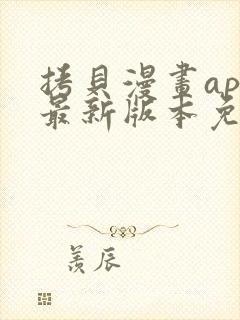 拷貝漫畫ap
最新版本免
羡辰